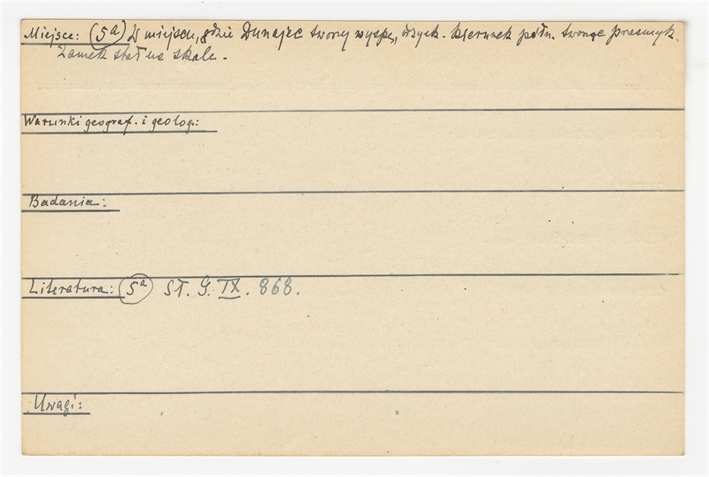 Miejsce: (5a) W miejscu, gdzie Dunajec tworzy wyspę, kierunek półn. tworząc przesmyk.
Zamek stał na skale.
Warunki geograf. i geolog.:
Badania:
Literatura: (5a) St. G. IX. 868.
Uwagi: